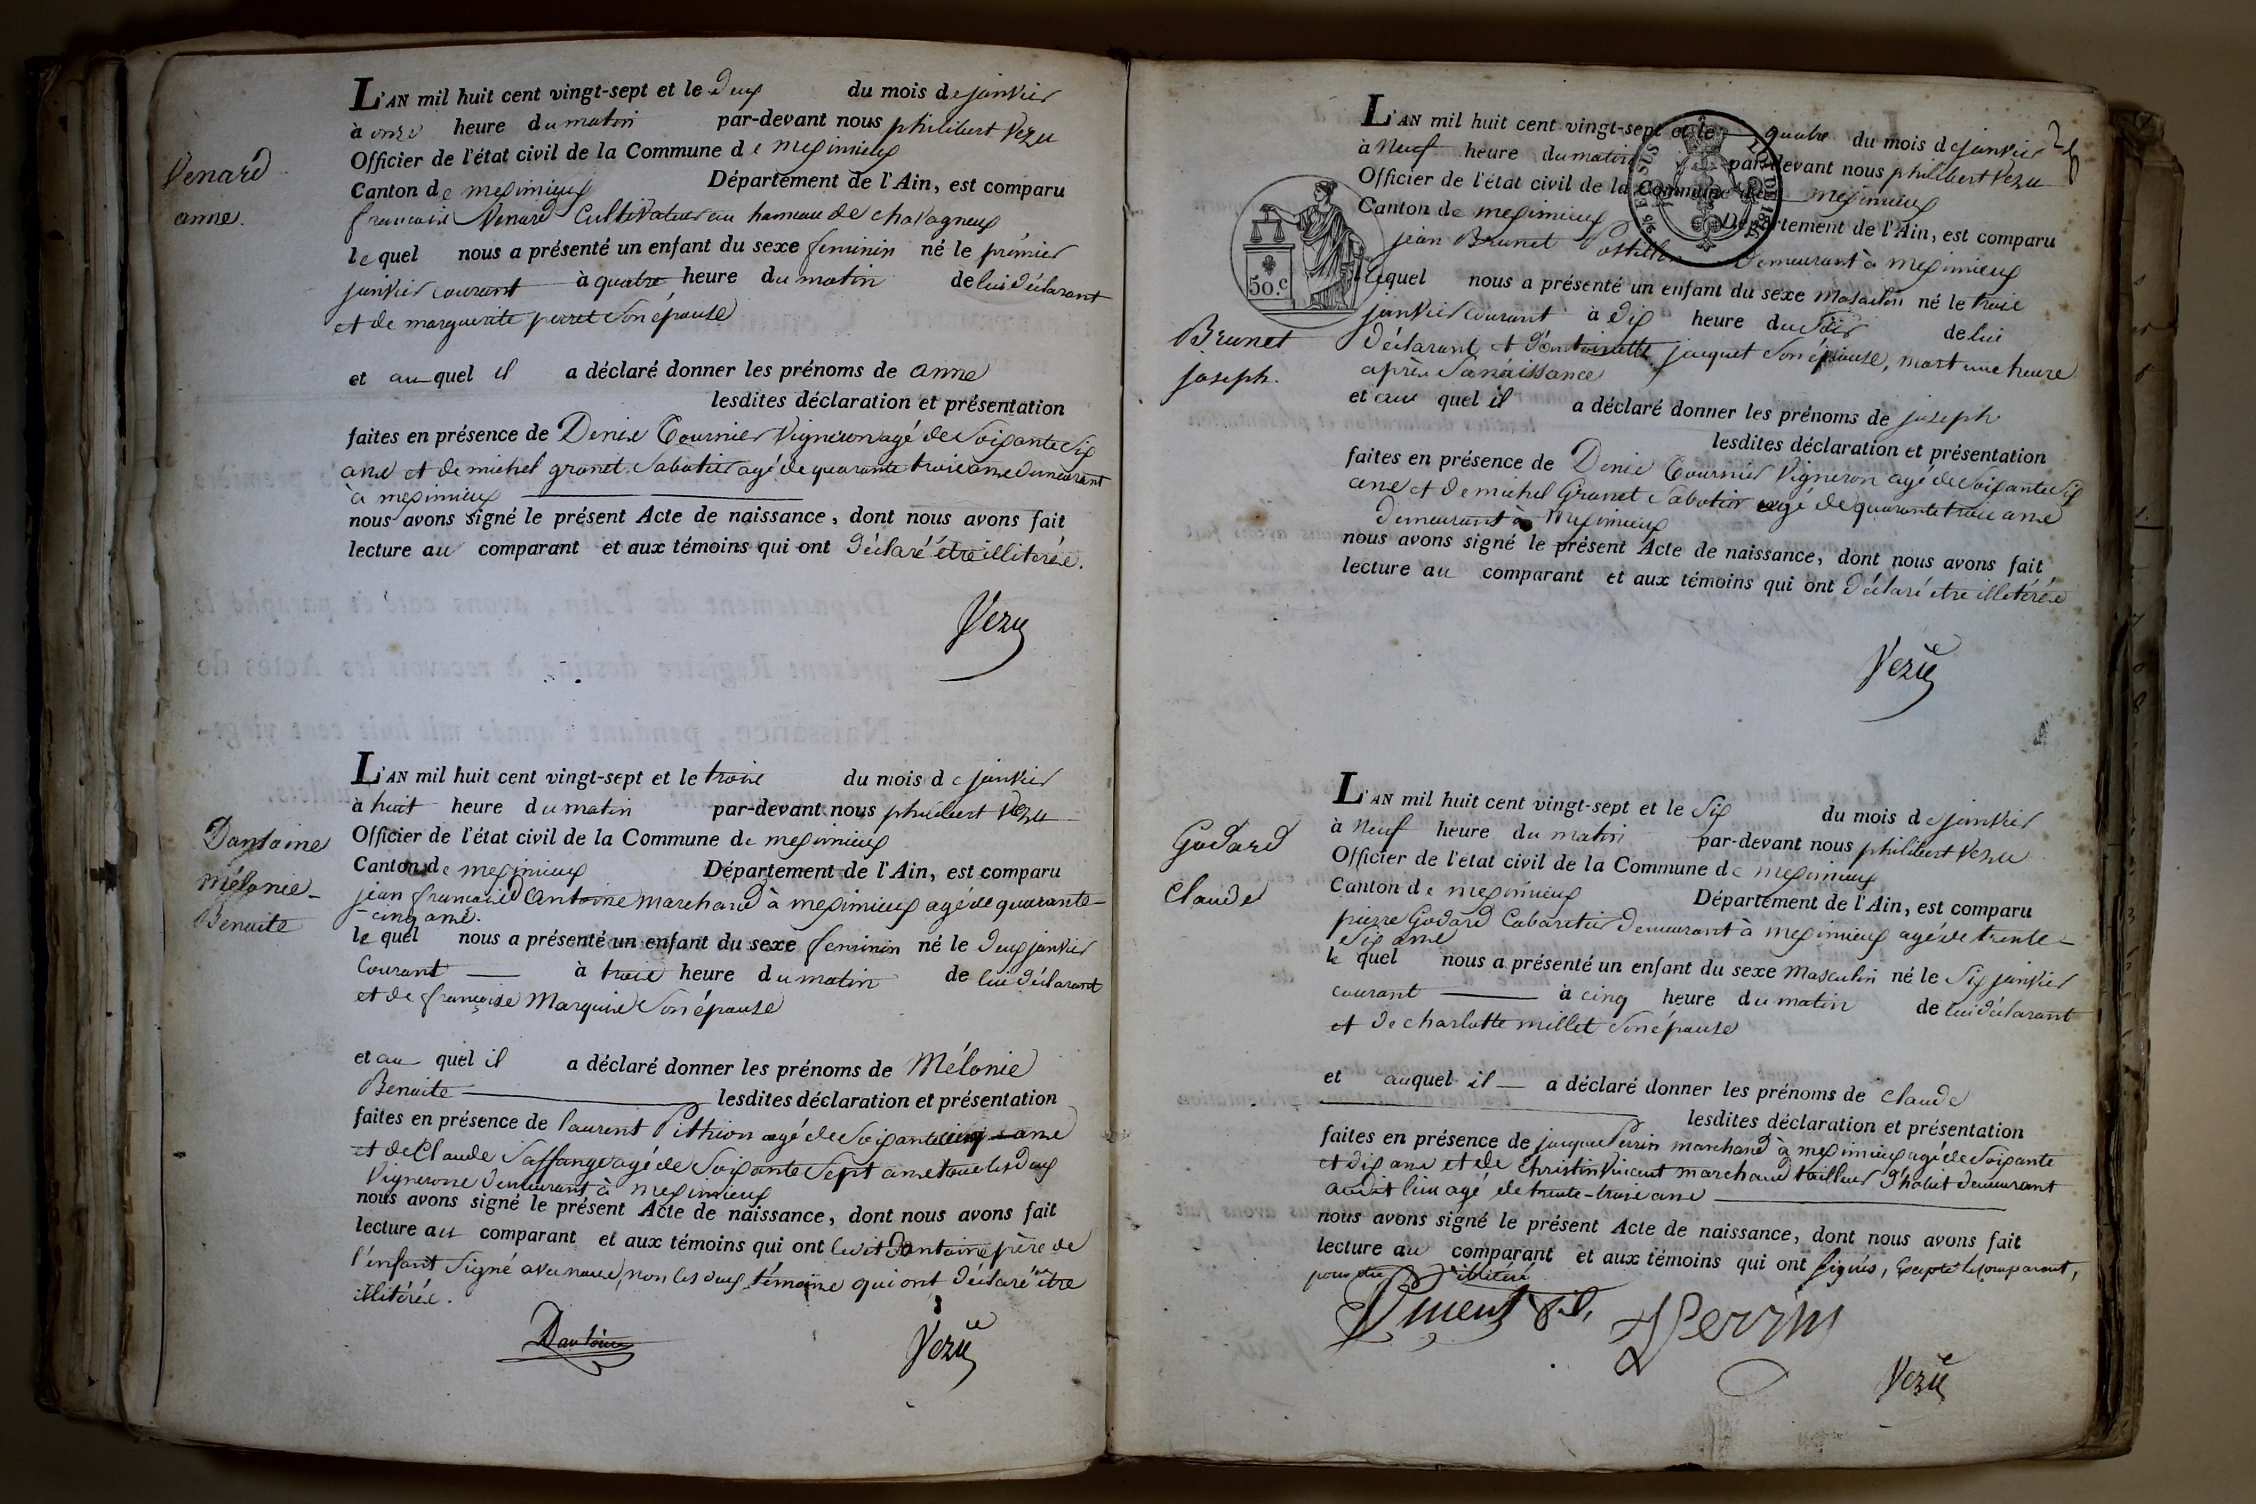 Venard
anne.
L'AN mil huit cent vingt-sept et le deux du mois de janvier
à onze heure du matin par-devant nous philibert Vezu
Officier de l'état civil de la Commune de meximieux
Canton de meximieux Département de l'Ain, est comparu
francois Venard Cultivateur au hameau de chavagneux
lequel nous a présenté un enfant du sexe feminin né le premier
janvier courant à quatre heure du matin de lui déclarant
et de marguerite perret son épouse
et au quel il a déclaré donner les prénoms de anne
lesdites déclaration et présentation
faites en présence de Denis Tournier Vigneron agé de soixante six
ans et de michel granet Sabotier agé de quarante trois ans demeurant
à meximieux
nous avons signé le présent Acte de naissance, dont nous avons fait
lecture au comparant et aux témoins qui ont déclaré être illitérés.
Vezu
Dantoine
Mélanie
Benoite
L'AN mil huit cent vingt-sept et le trois du mois de janvier
à huit heure du matin par-devant nous philibert Vezu
Officier de l'état civil de la Commune de meximieux
Canton de meximieux Département de l'Ain, est comparu
jean francois Dantoine marchand à meximieux agé de quarante
cinq ans.
lequel nous a présenté un enfant du sexe feminin né le deux janvier
Courant à trois heure du matin de lui déclarant
et de françoise Marquise son épouse
et au quel il a déclaré donner les prénoms de Mélanie
Benoite lesdites déclaration et présentation
faites en présence de laurent Pithion agé de soixante cinq ans
et de Claude Saffange agé de soixante sept ans tous les deux
Vignerons demeurant à meximieux
nous avons signé le présent Acte de naissance, dont nous avons fait
lecture au comparant et aux témoins qui ont ledit Dantoine père de
l'enfant signé avec nous, non les deux témoins qui ont déclaré être
illitérés.
Dantoine Vezu
L'AN mil huit cent vingt-sept et le quatre du mois de janvier
à Neuf heure du matin par-devant nous philibert Vezu
Officier de l'état civil de la Commune de meximieux
Canton de meximieux Département de l'Ain, est comparu
jean Brunet Postillon demeurant à meximieux
50.c
Brunet
joseph.
lequel nous a présenté un enfant du sexe Masculin né le trois
janvier courant à dix heure du Soir de lui
déclarant et d'antoinette jacquet son épouse, mort une heure
après sa naissance
et au quel il a déclaré donner les prénoms de joseph
lesdites déclaration et présentation
faites en présence de Denis Tournier Vigneron agé de soixante six
ans et de michel Granet Sabotier agé de quarante trois ans
demeurant à Meximieux
nous avons signé le présent Acte de naissance, dont nous avons fait
lecture au comparant et aux témoins qui ont déclaré etre illitérés
Vezu
Godard
claude
L'AN mil huit cent vingt-sept et le six du mois de janvier
à Neuf heure du matin par-devant nous philibert Vezu
Officier de l'état civil de la Commune de meximieux
Canton de meximieux Département de l'Ain, est comparu
pierre Godard Cabaretier demeurant à meximieux agé de trente
six ans
le quel nous a présenté un enfant du sexe Masculin né le six janvier
courant à cinq heure du matin de lui déclarant
et de charlotte millet son épouse
et auquel il a déclaré donner les prénoms de claude
lesdites déclaration et présentation
faites en présence de jacques Perrin marchand à meximieux agé de soixante
et dix ans et de Christin Vincent marchand tailleur d'habit demeurant
audit lieu agé de trente-trois ans
nous avons signé le présent Acte de naissance, dont nous avons fait
lecture au comparant et aux témoins qui ont signés, Excepté le comparant,
pour être illitéré
Vincent Perrin
Vezu